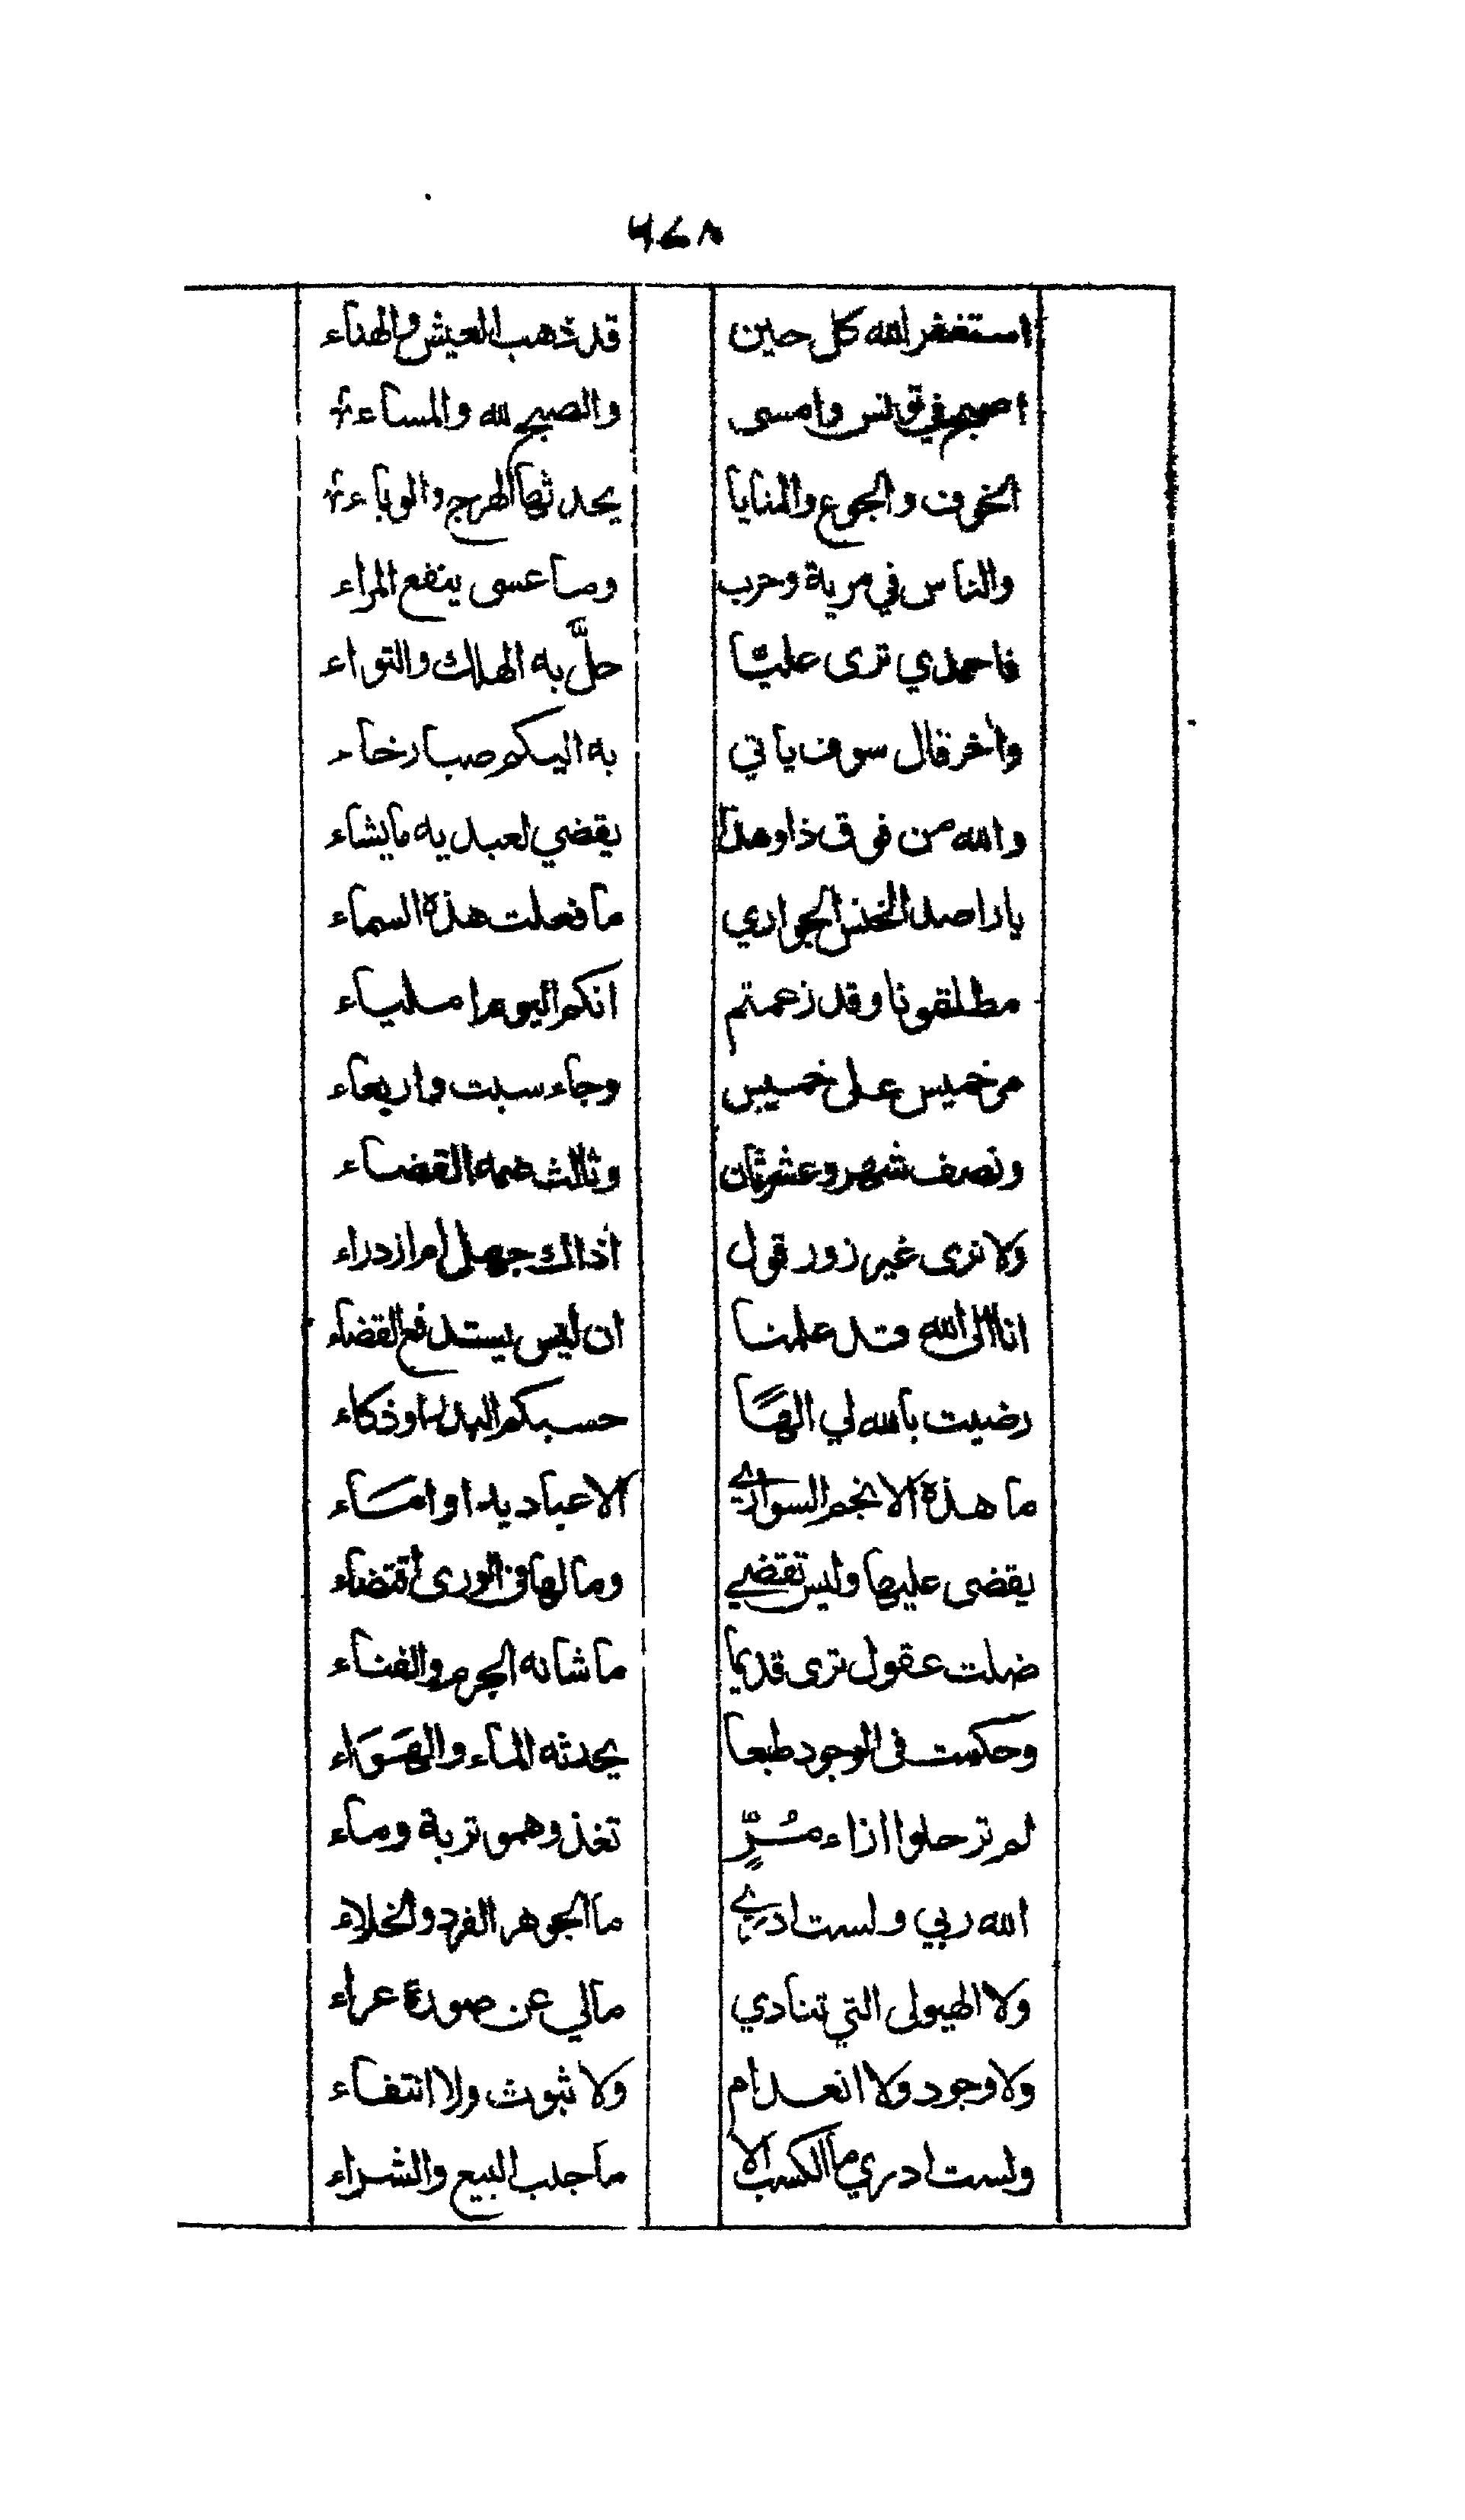 ٩٤٨
استغفر الله كل حين قد ذهب العيش والهناء
اصبح في تونس وامسى والصبح لله والمساء
الخوف والجوع والمنايا يحدثها الهرج والوباء
والناس في مرية وحرب وما عسى ينفع المراء
فاحمدي ترى عليّا حلّ به الهلك والتواء
وآخر قال سوف ياتي به اليكم صبا رخاء
والله من فوق ذا وهذا يقضي لعبديه ما يشاء
يا راصد الخنس الجواري ما فعلت هذه السماء
مطلقونا وقد زعمتم انكم اليوم املياء
من خميس على خميس وجاء سبت واربعاء
ونصف شهر وعشر ثان وثالث ضمه القضاء
ولا نرى غير زور قول اذاك جهل ام ازدراء
انا الى الله قد علمنا ان ليس يستدفع القضاء
رضيت بالله لي الهًا حسبكم البدر او ذكاء
ما هذه الانجم السواري الا عباديد او امَاء
يقضى عليها وليس تقضي وما لها في الورى اقتضاء
ضلت عقول ترى قديما ما شانه الجرم والفناء
وحكمت في الوجود طبعا يحدثه الماء والهَوَاء
لم تر حلوا ازاء مُرٍّ تغذوهمو تربة وماء
الله ربي ولست ادري ما الجوهر الفرد والخلاء
ولا الهيولى التي تنادي مالي عن صورة عراء
ولا وجود ولا انعدام ولا ثبوت ولا انتفاء
ولست ادري ما الكسب الا ما جلب البيع والشراء